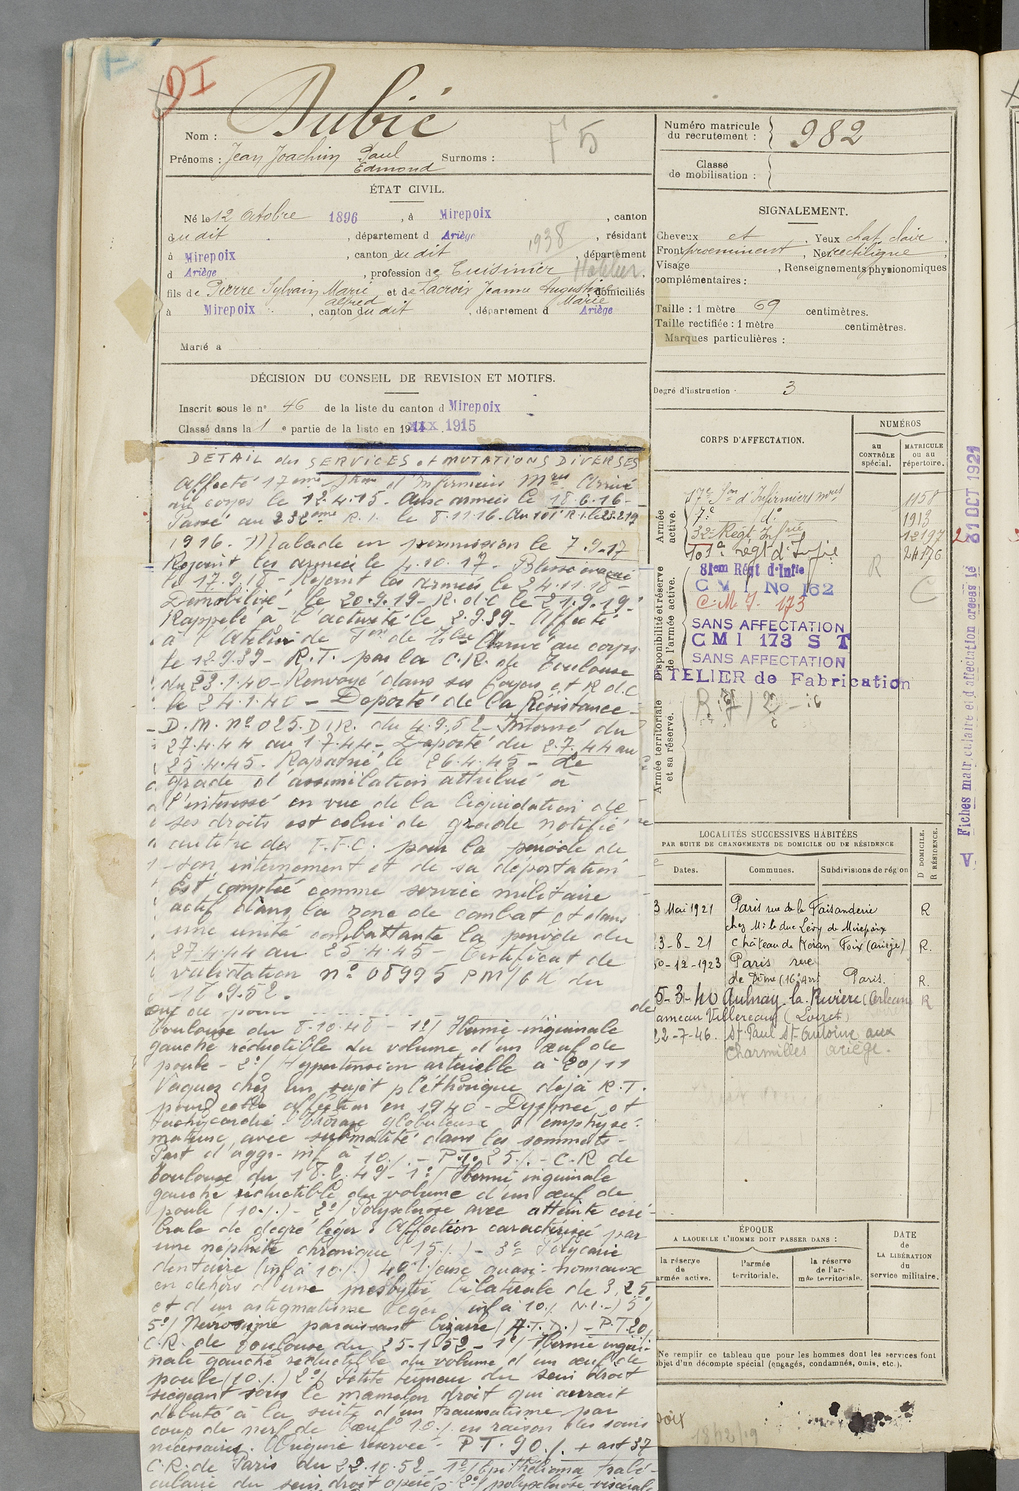 DI
Nom : Dubié
Prénoms : Jean Joachim Paul Edmond Surnoms :
75
ÉTAT CIVIL.
Né le 12 Octobre 1896, à Mirepoix, canton
dudit, département d Ariège, résidant
à Mirepoix, canton dudit, département
d Ariège, profession de Cuisinier
1938
fils de Pierre Sylvain Marie Alfred et de Lacroix Jeanne Augustine Marie domiciliés
à Mirepoix, canton dudit, département d Ariège
Marié à
DÉCISION DU CONSEIL DE REVISION ET MOTIFS.
Inscrit sous le n° 46 de la liste du canton d Mirepoix
Classé dans la 1 e partie de la liste en 1915
DETAIL des SERVICES et MUTATIONS DIVERSES
Affecté 17ème Son d'Infirmiers Mres Arrivé
au corps le 12.4.15. Aux armées le 18.6.16-
Passé au 232ème R.I. le 8.11.16. Au 101e R.I. le 23.2.19
1916. Malade en permission le 7.9.17
Rejoint les armées le 4.10.17 - Blessé évacué
le 17.9.18 - Rejoint les armées le 24.11.18
Démobilisé le 20.9.19 - R.d.C. le 21.9.19.
Rappelé à l'activité le 2.9.39. Affecté
à l'Atelier de de Arrivé au corps
le 12.9.39 - R.T. par la C.R. de Toulouse
du 23.1.40 - Renvoyé dans ses foyers et R d C
le 24.1.40 - Déporté de la Résistance -
- D.M. N° 025.DIR. du 4.9.52 - Interné du
27.4.44 au 1.7.44 - Déporté du 2.7.44 au
25.4.45. Rapatrié le 26.4.45 - Le
grade d'assimilation attribué à
l'intéressé en vue de la liquidation de
ses droits est celui de grade notifié
au titre des F.F.C. pour la période de
son internement et de sa déportation
Est comptée comme service militaire
actif dans la zone de combat et dans
une unité combattante la période du
27.4.44 au 25.4.45 - Certificat de
validation n° 08995 du
17.9.52.
Toulouse du 8.10.48 - 1°/ Hernie inguinale
gauche réductible du volume d'un œuf de
poule - 2°/ Hypertension artérielle à 20/11
Vaquez chez un sujet pléthorique déjà R.T.
pour cette affection en 1940 - Dyspnée et
tachycardie Thorax globuleux d'emphysé-
mateux, avec submatité dans les sommets -
Part d'aggr. inf à 10% - P.T. 25% - C.R de
Toulouse du 18.2.49 - 1°/ Hernie inguinale
gauche réductible du volume d'un œuf de
poule (10%) - 2°/ Polysclérose avec atteinte céré-
brale de degré léger : Affection caractérisée par
une néphrite chronique (15%) - 3° Polycarie
dentaire (inf à 10%) 4° quasi-normaux
en dehors d'une presbytie bilatérale de 3,25
et d'un astigmatisme léger inf à 10%
5°/ Nevrosisme paraissant bizarre - P.T 20%
C.R. de Toulouse du 25-1-52 - 1°/ Hernie ingui-
nale gauche réductible du volume d'un œuf de
poule (10%) 2°/ Petite tumeur du sein droit
siégeant sous le mamelon droit qui aurait
débuté à la suite d'un traumatisme par
coup de nerf de bœuf 10% en raison des soins
nécessaires. - PT. 90% + art 37
C.R. de Paris du 22.10.52 - 1°/ Epithélioma trabé-
culaire du sein droit opéré ; 2°/ polysclérose viscérale
Numéro matricule du recrutement : 982
Classe de mobilisation :
SIGNALEMENT.
Cheveux et, Yeux chat. clair,
Front proéminent, Nez rectiligne,
Visage, Renseignements physionomiques
complémentaires :
Taille : 1 mètre 69 centimètres.
Taille rectifiée : 1 mètre centimètres.
Marques particulières :
Degré d'instruction : 3
CORPS D'AFFECTATION.
NUMÉROS
au CONTRÔLE spécial.
MATRICULE ou au répertoire.
Armée active.
17e Son d'Infirmiers mres 1158
7e do 1913
32e Régt Infie 12197
101e Régt d'Infie 24176
R
C
Disponibilité et réserve de l'armée active.
81em Régt d'Infie
C M I No 162
C.M.I. 173
SANS AFFECTATION
CMI 173 S T
SANS AFFECTATION
TELIER de Fabrication
Armée territoriale et sa réserve.
Fiches matriculaire et d'affectation créées le 31 OCT 1921
LOCALITÉS SUCCESSIVES HABITÉES
PAR SUITE DE CHANGEMENTS DE DOMICILE OU DE RÉSIDENCE
D DOMICILE. R RÉSIDENCE.
Dates. Communes. Subdivisions de région
3 Mai 1921 Paris rue de la Faisanderie R
chez Mr le duc Lévy de Mirepoix
3-8-21 Château de Foix (Ariège) R.
0-12-1923 Paris rue
de Dôme (16e Arr) Paris. R.
5-3-40 Aulnay la Rivière (Orléans R
ameau Villereau (Loiret)
22-7-46. St Paul St Antoine aux
Charmilles Ariège.
ÉPOQUE
A LAQUELLE L'HOMME DOIT PASSER DANS :
la réserve de l'armée active.
l'armée territoriale.
la réserve de l'armée territoriale.
DATE de LA LIBÉRATION du service militaire.
Ne remplir ce tableau que pour les hommes dont les services font
objet d'un décompte spécial (engagés, condamnés, omis, etc.).